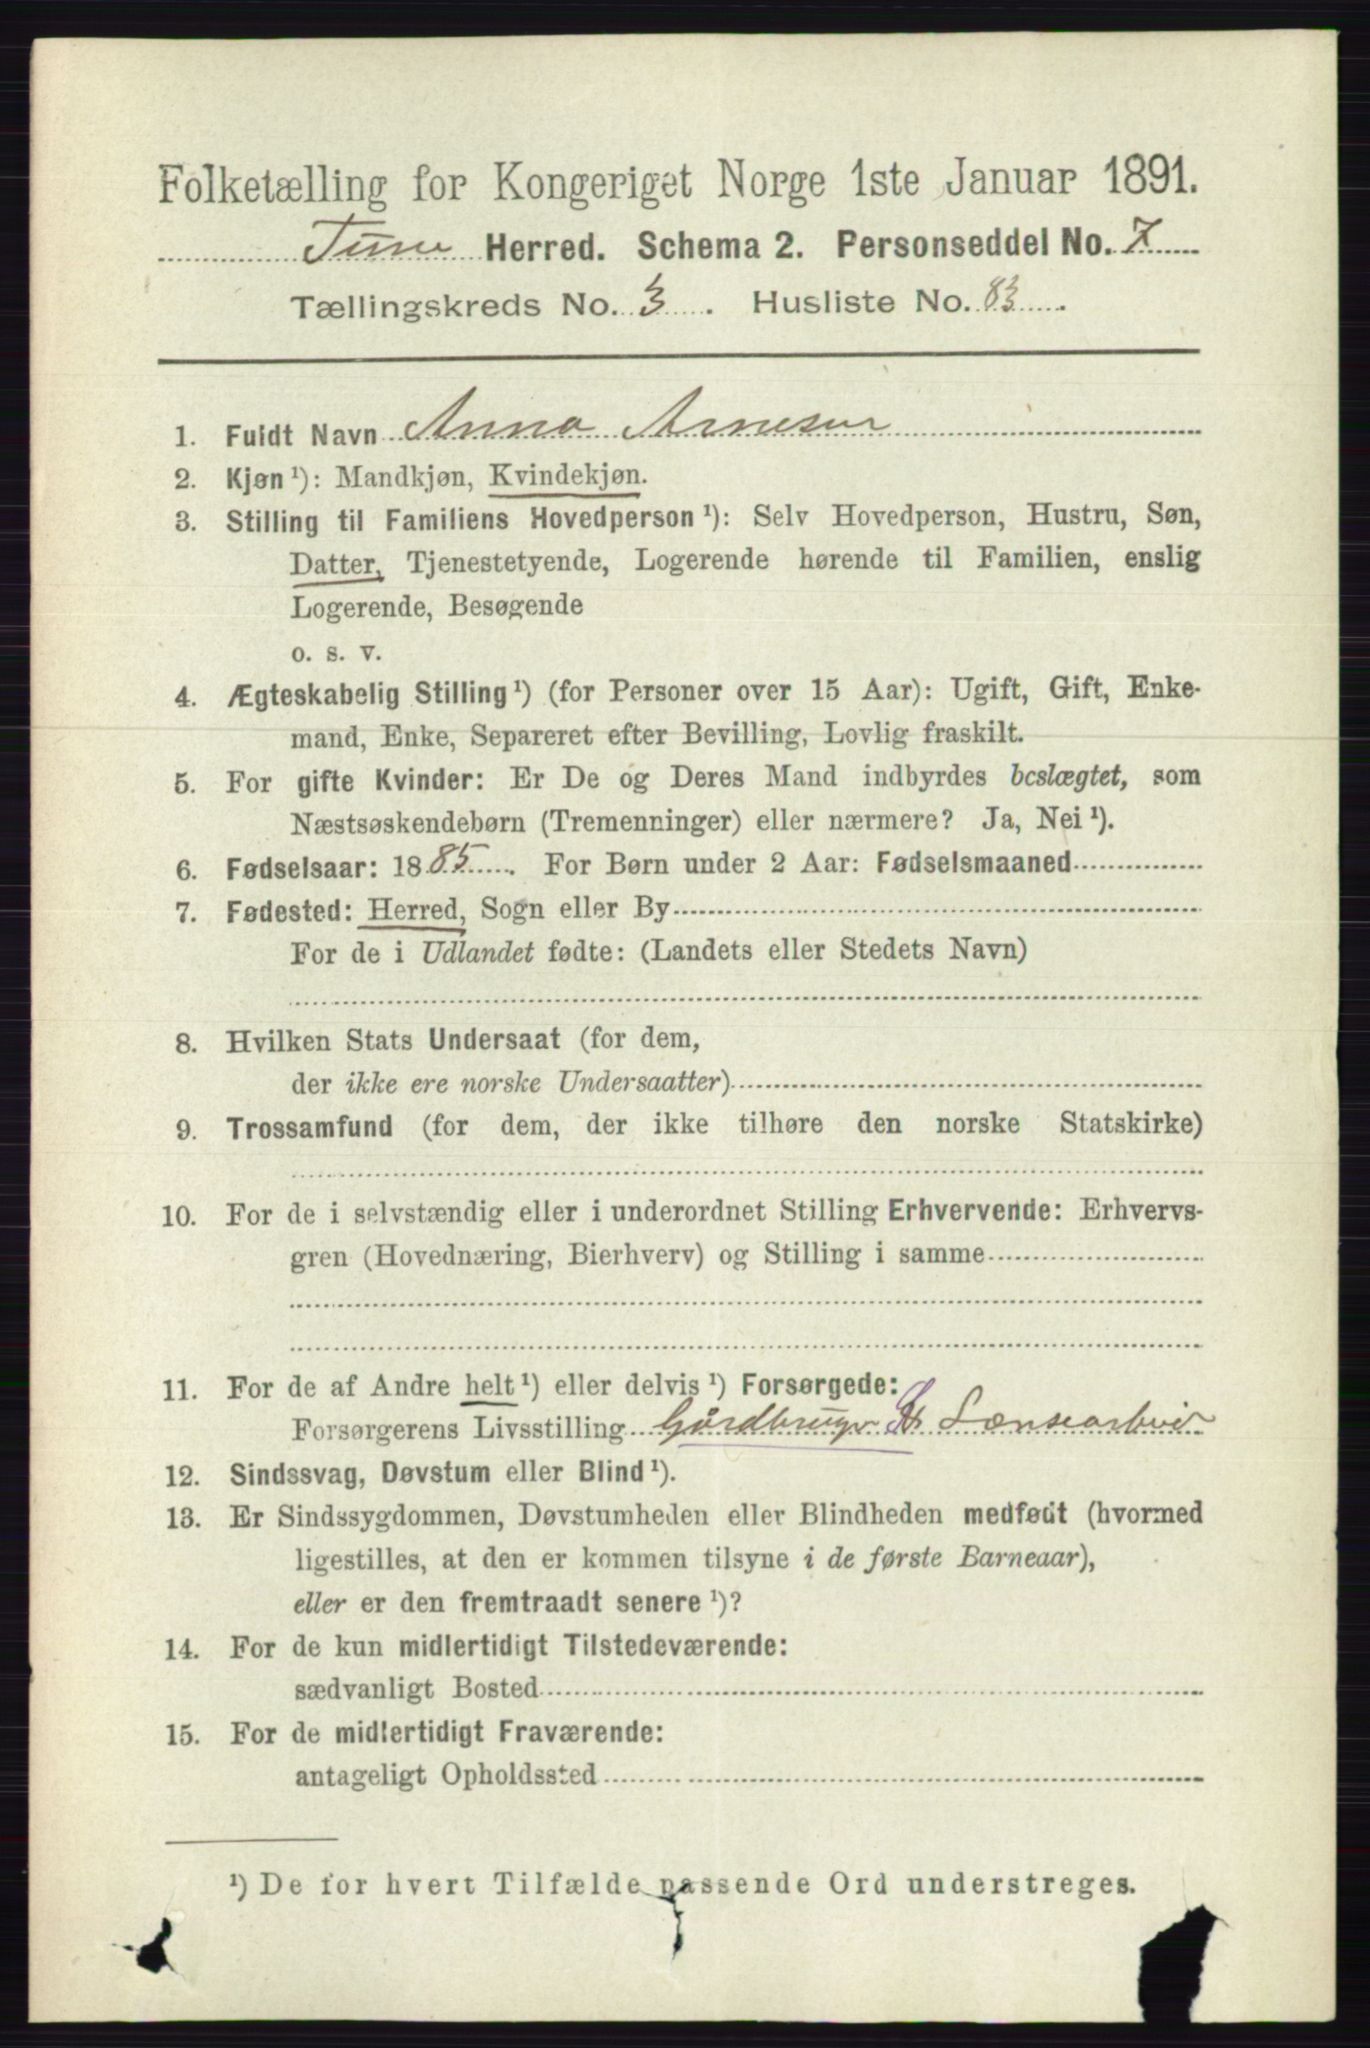 Folketælling for Kongeriget Norge 1ste Januar 1891.
Tune Herred. Schema 2. Personseddel No. 7
Tællingskreds No. 3. Husliste No. 83.
1. Fuldt Navn Anna Arnesen
2. Kjøn ¹): Mandkjøn, Kvindekjøn.
3. Stilling til Familiens Hovedperson ¹): Selv Hovedperson, Hustru, Søn,
Datter, Tjenestetyende, Logerende hørende til Familien, enslig
Logerende, Besøgende
o. s. v.
4. Ægteskabelig Stilling ¹) (for Personer over 15 Aar): Ugift, Gift, Enke-
mand, Enke, Separeret efter Bevilling, Lovlig fraskilt.
5. For gifte Kvinder: Er De og Deres Mand indbyrdes beslægtet, som
Næstsøskendebørn (Tremenninger) eller nærmere? Ja, Nei ¹).
6. Fødselsaar: 1885. For Børn under 2 Aar: Fødselsmaaned
7. Fødested: Herred, Sogn eller By
For de i Udlandet fødte: (Landets eller Stedets Navn)
8. Hvilken Stats Undersaat (for dem,
der ikke ere norske Undersaatter)
9. Trossamfund (for dem, der ikke tilhøre den norske Statskirke)
10. For de i selvstændig eller i underordnet Stilling Erhvervende: Erhvervs-
gren (Hovednæring, Bierhverv) og Stilling i samme
11. For de af Andre helt ¹) eller delvis ¹) Forsørgede:
Forsørgerens Livsstilling Gårdbruger Lænsearbeid
12. Sindssvag, Døvstum eller Blind ¹).
13. Er Sindssygdommen, Døvstumheden eller Blindheden medfødt (hvormed
ligestilles, at den er kommen tilsyne i de første Barneaar),
eller er den fremtraadt senere ¹)?
14. For de kun midlertidigt Tilstedeværende:
sædvanligt Bosted
15. For de midlertidigt Fraværende:
antageligt Opholdssted
¹) De for hvert Tilfælde passende Ord understreges.